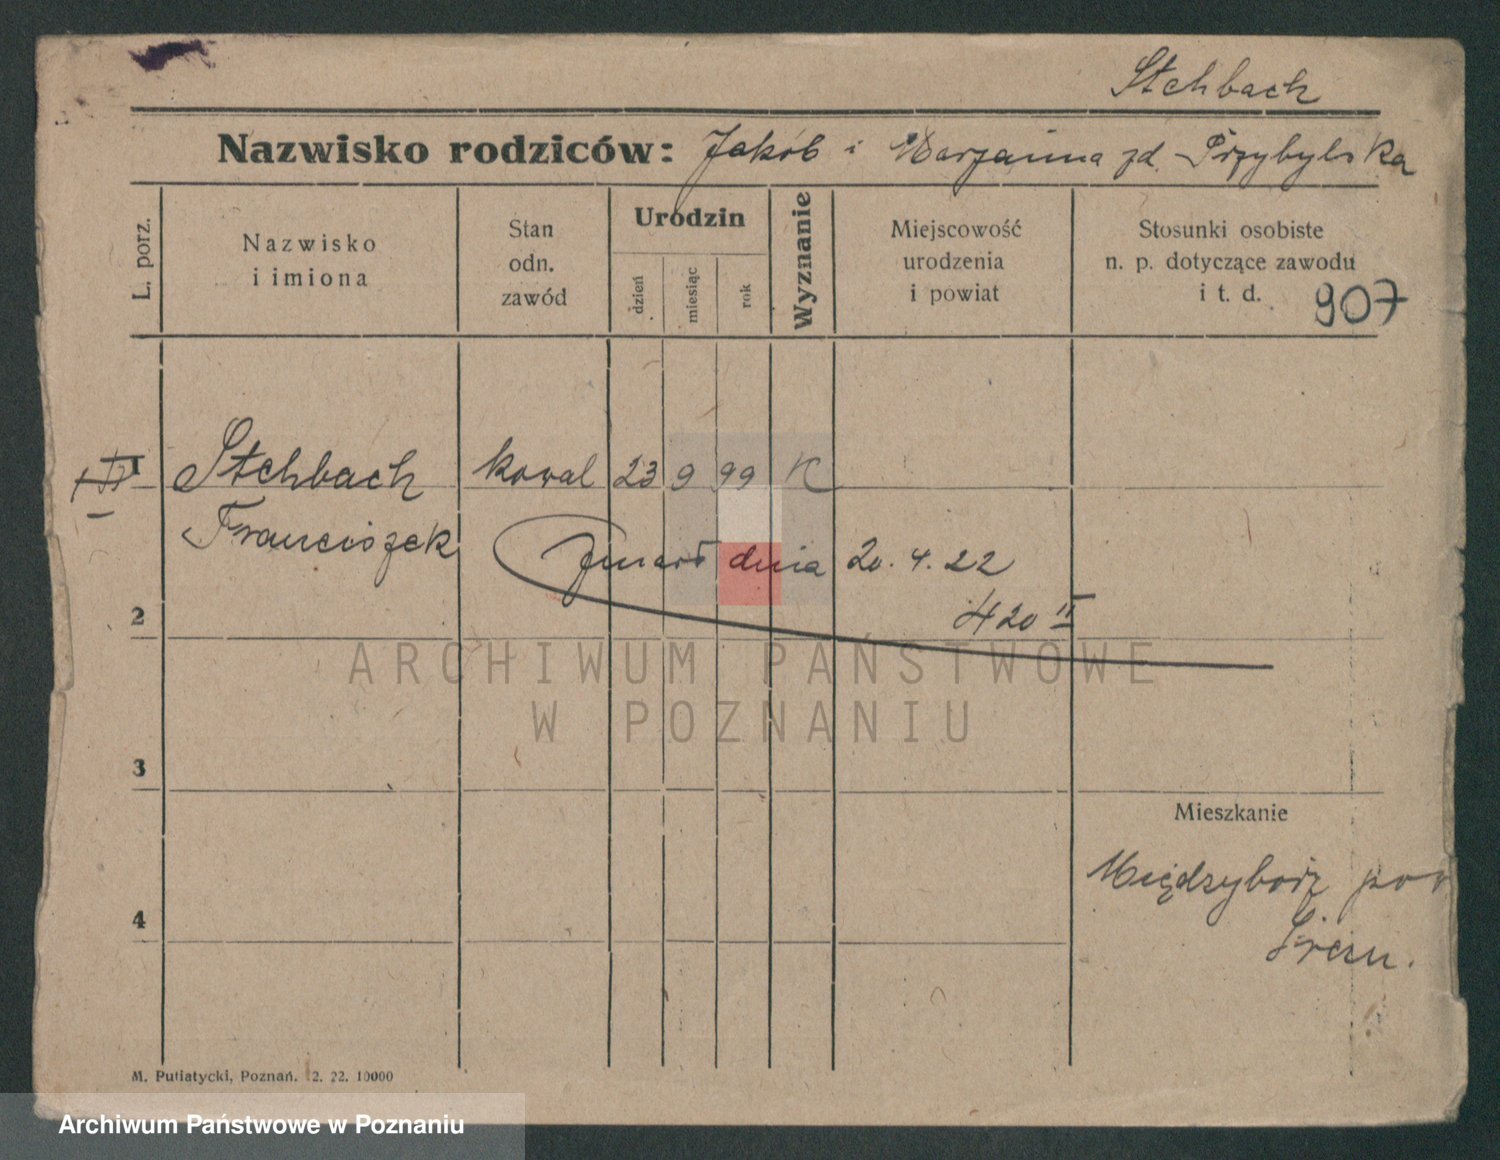 Stehbach
Nazwisko rodziców: Jakób i Marjanna zd. Przybylska
L. porz.
Nazwisko
i imiona
Stan
odn.
zawód
Urodzin
dzień
miesiąc
rok
Wyznanie
Miejscowość
urodzenia
i powiat
Stosunki osobiste
n. p. dotyczące zawodu
i t. d.
907
1
Stehbach
kowal 23 9 99 K
Franciszek
Zmarł dnia 20. 4. 22
420 II
2
ARCHIWUM PAŃSTWOWE
W POZNANIU
3
Mieszkanie
Międzybórz pow
4
Śrem.
M. Putiatycki, Poznań. 2. 22. 10000
Archiwum Państwowe w Poznaniu